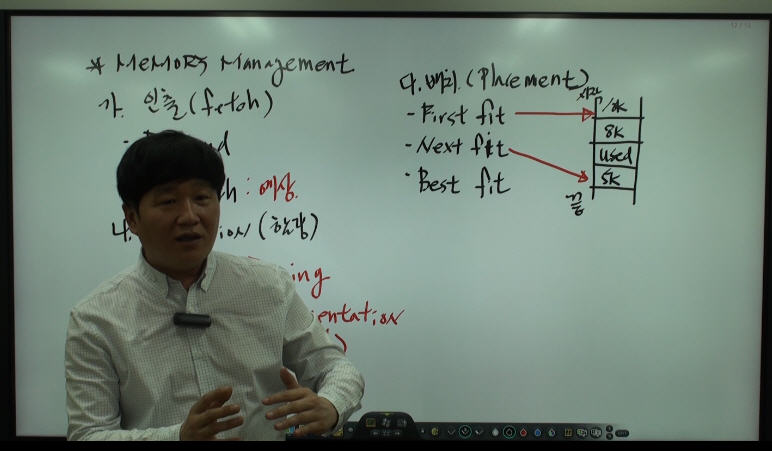 * MeMORy Management
가. 인출(fetch)
: 예상.
나. (할당)
ing
entation
)
다. 배치.(Placement)
- First fit
- Next fit
- Best fit
8K
used
5K
끝